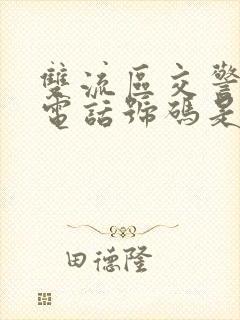 雙流區交警
電話號碼是
田德隆